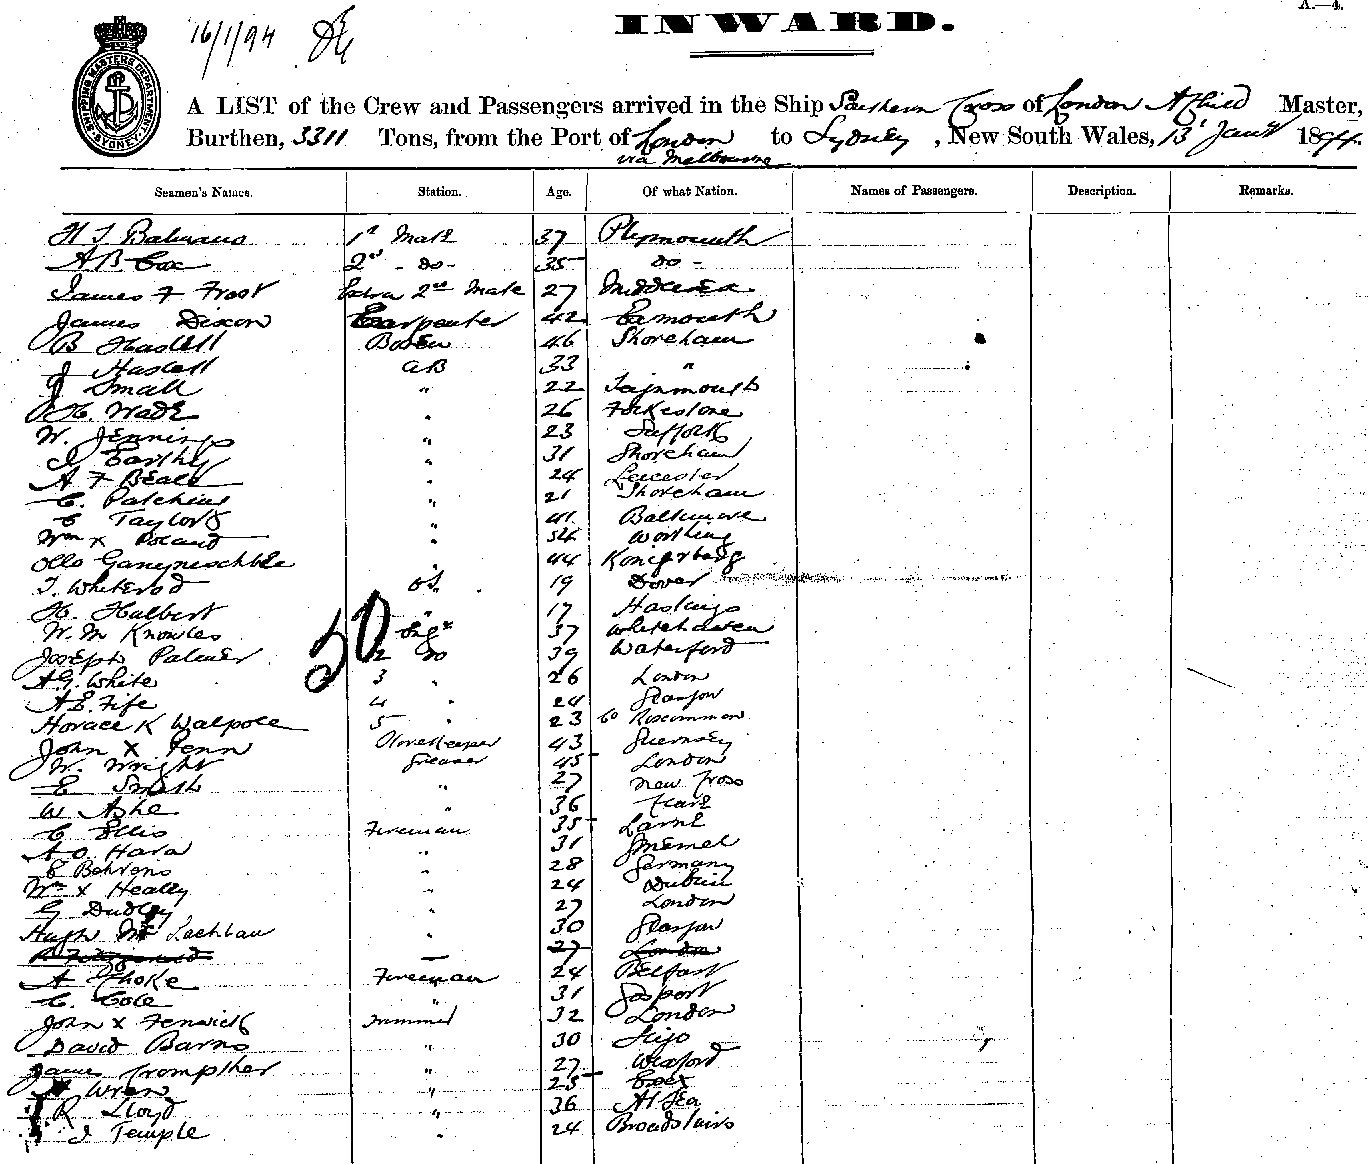 A.—4.
16/1/94
INWARD.
SHIPPING MASTERS DEPARTMENT SYDNEY
A LIST of the Crew and Passengers arrived in the Ship Southern Cross of London A Child Master,
Burthen, 3311 Tons, from the Port of London to Sydney, New South Wales, 13 Jany 1894.
via Melbourne
Seamen's Names. Station. Age. Of what Nation. Names of Passengers. Description. Remarks.
1st Mate 37 Plymouth
A B Cox 2nd - do - 35 do -
James F Frost Extra 2nd Mate 27 Middlesex
James Dixon Carpenter 42 Exmouth
B Haslett Bosen 46 Shoreham
J Haslett AB 33 "
J Small " 22 Teignmouth
H. Wade " 26 Folkestone
W. Jennings " 23 Suffolk
J Earthy " 31 Shoreham
A F Beale " 24 Leicester
C. Patching " 21 Shoreham
C Taylor " 41 Baltimore
Wm x Poland " 54 Worthing
Otto " 44 Konigsberg
T. Whiterod OS. 19 Dover
H. Hulbert " 17 Hastings
W. M Knowles Engr 37 Whitehaven
50
Joseph Palmer 2 do 39 Waterford
A G. White 3 " 26 London
A E. Fife 4 " 24 Glasgow
Horace K Walpole 5 " 23 Co Roscommon
John X Fenn Storekeeper 43 Guernsey
W. Wright Greaser 45 London
E Smith " 27 New Cross
W Ashe " 36
C Ellis Fireman 35 Larne
A O. Hara " 31 Memel
E Behrens " 28 Germany
Wm x Healey " 24 Dublin
G Dudley " 27 London
Hugh Mc Lachlan " 30 Glasgow
27 London
A Choke Fireman 24 Belfast
C. Cole " 31 Gosport
John x Fenwick Trimmer 32 London
David Barns " 30 Sligo
James Crompther " 27 Wexford
Wren " 25 Essex
R Lloyd " 36 At Sea
J Temple " 24 Broadstairs